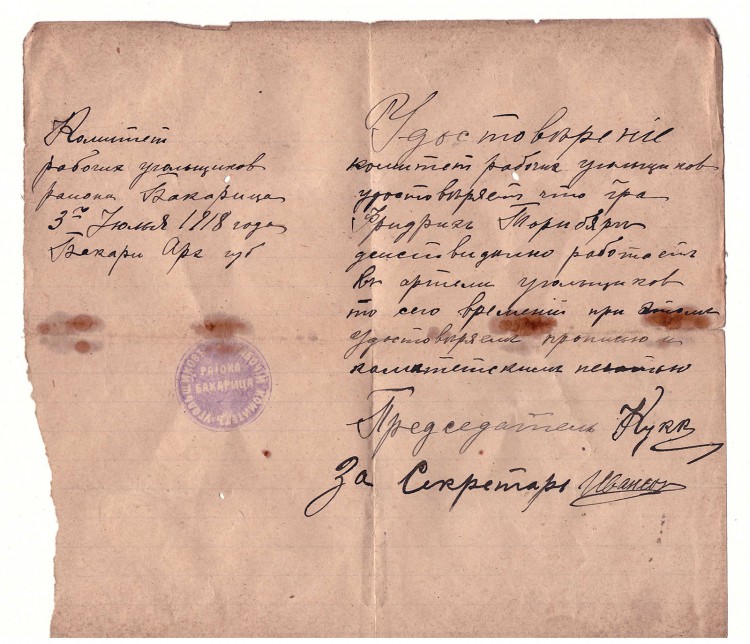 Комитет
рабочих угольщиков
района Бакарица
3го Июля 1918 года
Бакари Арх губ
РАЙОНА
БАКАРИЦА
Удостовѣрение
комитет рабочих угольщиков
удостовѣряет что гра
Фридрих
действидкно работает
в артели угольщиков
то сего времений при этом
удостовѣряем прописю и
комитетским печатью
Председатель Кукк
За Секретарь Иванов